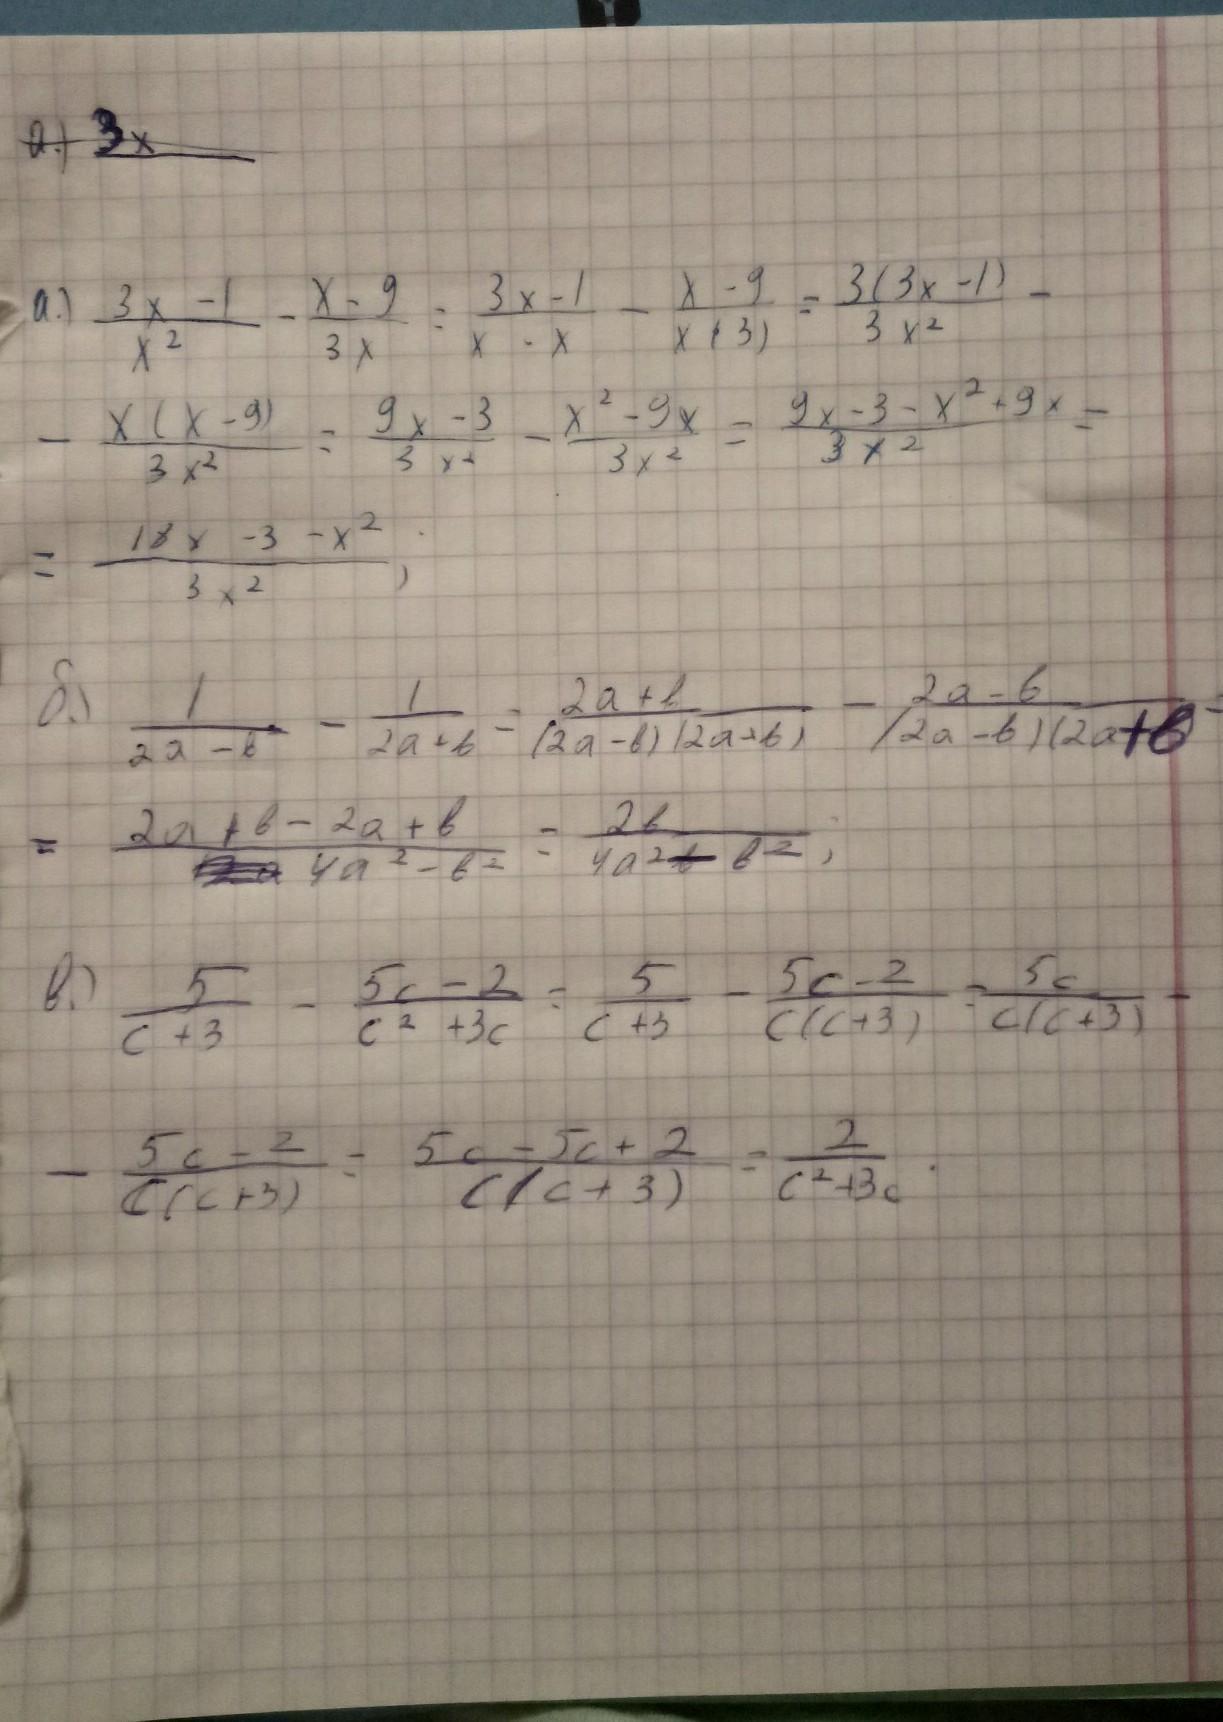 а.) 3x
а.) (3x - 1)/x² - (x - 9)/3x = (3x - 1)/(x · x) - (x - 9)/(x(3)) = 3(3x - 1)/3x² -
- x(x - 9)/3x² = (9x - 3)/3x² - (x² - 9x)/3x² = (9x - 3 - x² + 9x)/3x² =
= (18x - 3 - x²)/3x²;
б.) 1/(2a - b) - 1/(2a + b) = (2a + b)/((2a - b)(2a + b)) - (2a - b)/((2a - b)(2a + b) =
= (2a + b - 2a + b)/(4a² - b²) = 2b/(4a² - b²);
в.) 5/(c + 3) - (5c - 2)/(c² + 3c) = 5/(c + 3) - (5c - 2)/(c(c + 3)) = 5c/(c(c + 3)) -
- (5c - 2)/(c(c + 3)) = (5c - 5c + 2)/(c(c + 3)) = 2/(c² + 3c).